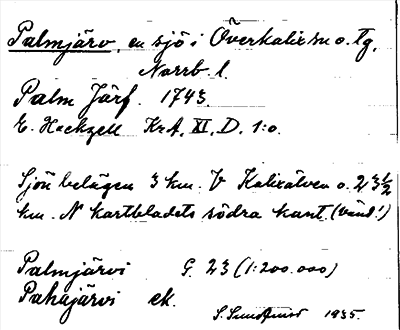 Palmjärv, en sjö i Överkalix sn o. Tg,
Norrb. l.
Palm Järf. 1743.
E. Hackzell KrA. XI. D. 1:o.
Sjön belägen 3 km. V Kalixälven o. 2 3½
km. N kartbladets södra kant. (vänd!)
Palmjärvi G. 23 (1:200.000)
Pahajärvi ek.
S. Sundqvist 1935.